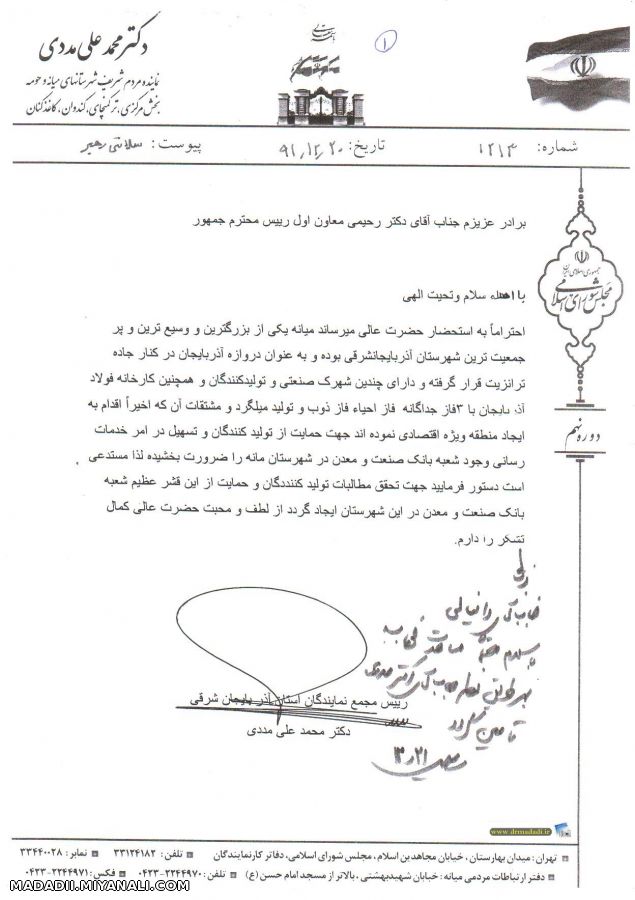 ۱
دکتر محمد علی مددی
نماینده مردم شریف شهرستانهای میانه و حومه
بخش مرکزی، ترکمنچای، کندوان، کاغذکنان
شماره: ۱۲۱۳
تاریخ: ۹۱،۱۲،۲۰
پیوست: سلامتی رهبر
جمهوری اسلامی ایران
مجلس شورای اسلامی
دوره نهم
برادر عزیزم جناب آقای دکتر رحیمی معاون اول رییس محترم جمهور
با سلام وتحیت الهی
احتراماً به استحضار حضرت عالی میرساند میانه یکی از بزرگترین و وسیع ترین و پر
جمعیت ترین شهرستان آذربایجانشرقی بوده و به عنوان دروازه آذربایجان در کنار جاده
ترانزیت قرار گرفته و دارای چندین شهرک صنعتی و تولیدکنندگان و همچنین کارخانه فولاد
آذربایجان با ۳فاز جداگانه فاز احیاء فاز ذوب و تولید میلگرد و مشتقات آن که اخیراً اقدام به
ایجاد منطقه ویژه اقتصادی نموده اند جهت حمایت از تولید کنندگان و تسهیل در امر خدمات
رسانی وجود شعبه بانک صنعت و معدن در شهرستان مانه را ضرورت بخشیده لذا مستدعی
است دستور فرمایید جهت تحقق مطالبات تولید کننددگان و حمایت از این قشر عظیم شعبه
بانک صنعت و معدن در این شهرستان ایجاد گردد از لطف و محبت حضرت عالی کمال
تشکر را دارم.
جناب آقای دانیالی
جناب آقای دکتر مددی
تامین گردد
۳٫۲۱
رییس مجمع نمایندگان استان آذر بایجان شرقی
دکتر محمد علی مددی
www.drmadadi.ir
تهران: میدان بهارستان، خیابان مجاهدین اسلام، مجلس شورای اسلامی، دفاتر کارنمایندگان تلفن: ۳۳۱۲۴۱۸۲ نمابر: ۳۳۴۴۰۰۲۸
دفتر ارتباطات مردمی میانه: خیابان شهیدبهشتی، بالاتر از مسجد امام حسن (ع) تلفن: ۲۲۴۴۹۷۰-۰۴۲۳ فکس: ۲۲۴۴۹۷۱-۰۴۲۳
MADADII.MIYANALI.COM